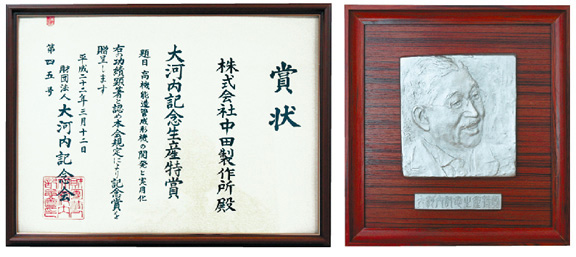 賞状
株式会社中田製作所殿
大河内記念生産特賞
題目 高機能造管成形機の開発と実用化
右の功績顕著と認め本会規定により記念賞を
贈呈します
平成二十二年三月十二日
財団法人 大河内記念会
第四五号